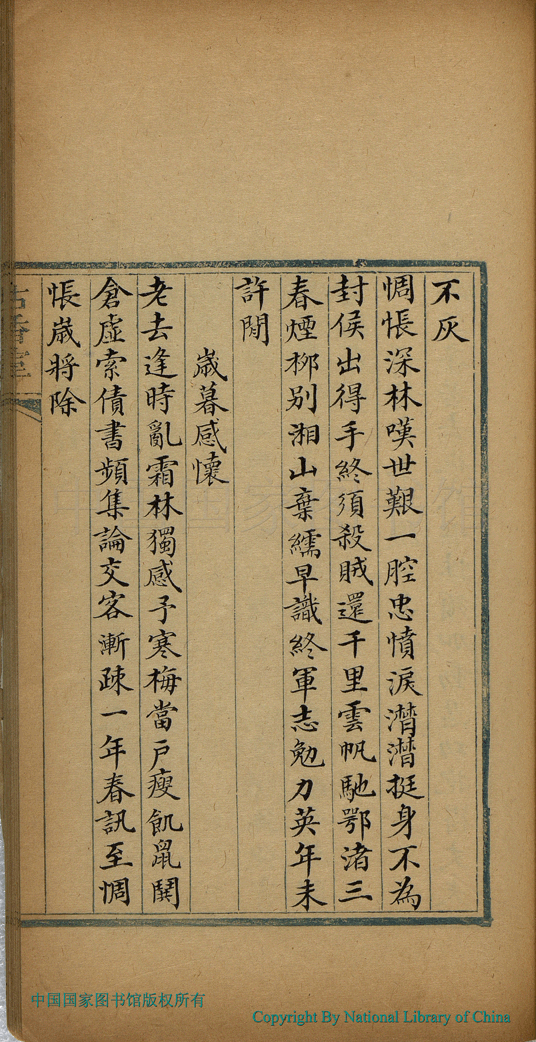 不灰
惆悵深林嘆世艱一腔忠憤淚潸潸挺身不為
封侯出得手終須殺賊還千里雲帆馳鄂渚三
春煙柳別湘山棄繻早識終軍志勉力英年未
許閒
歲暮感懷
老去逢時亂霜林獨感予寒梅當戶瘦飢鼠鬬
倉虛索債書頻集論交客漸疎一年春訊至惆
悵歲將除
中国国家图书馆版权所有
Copyright By National Library of China